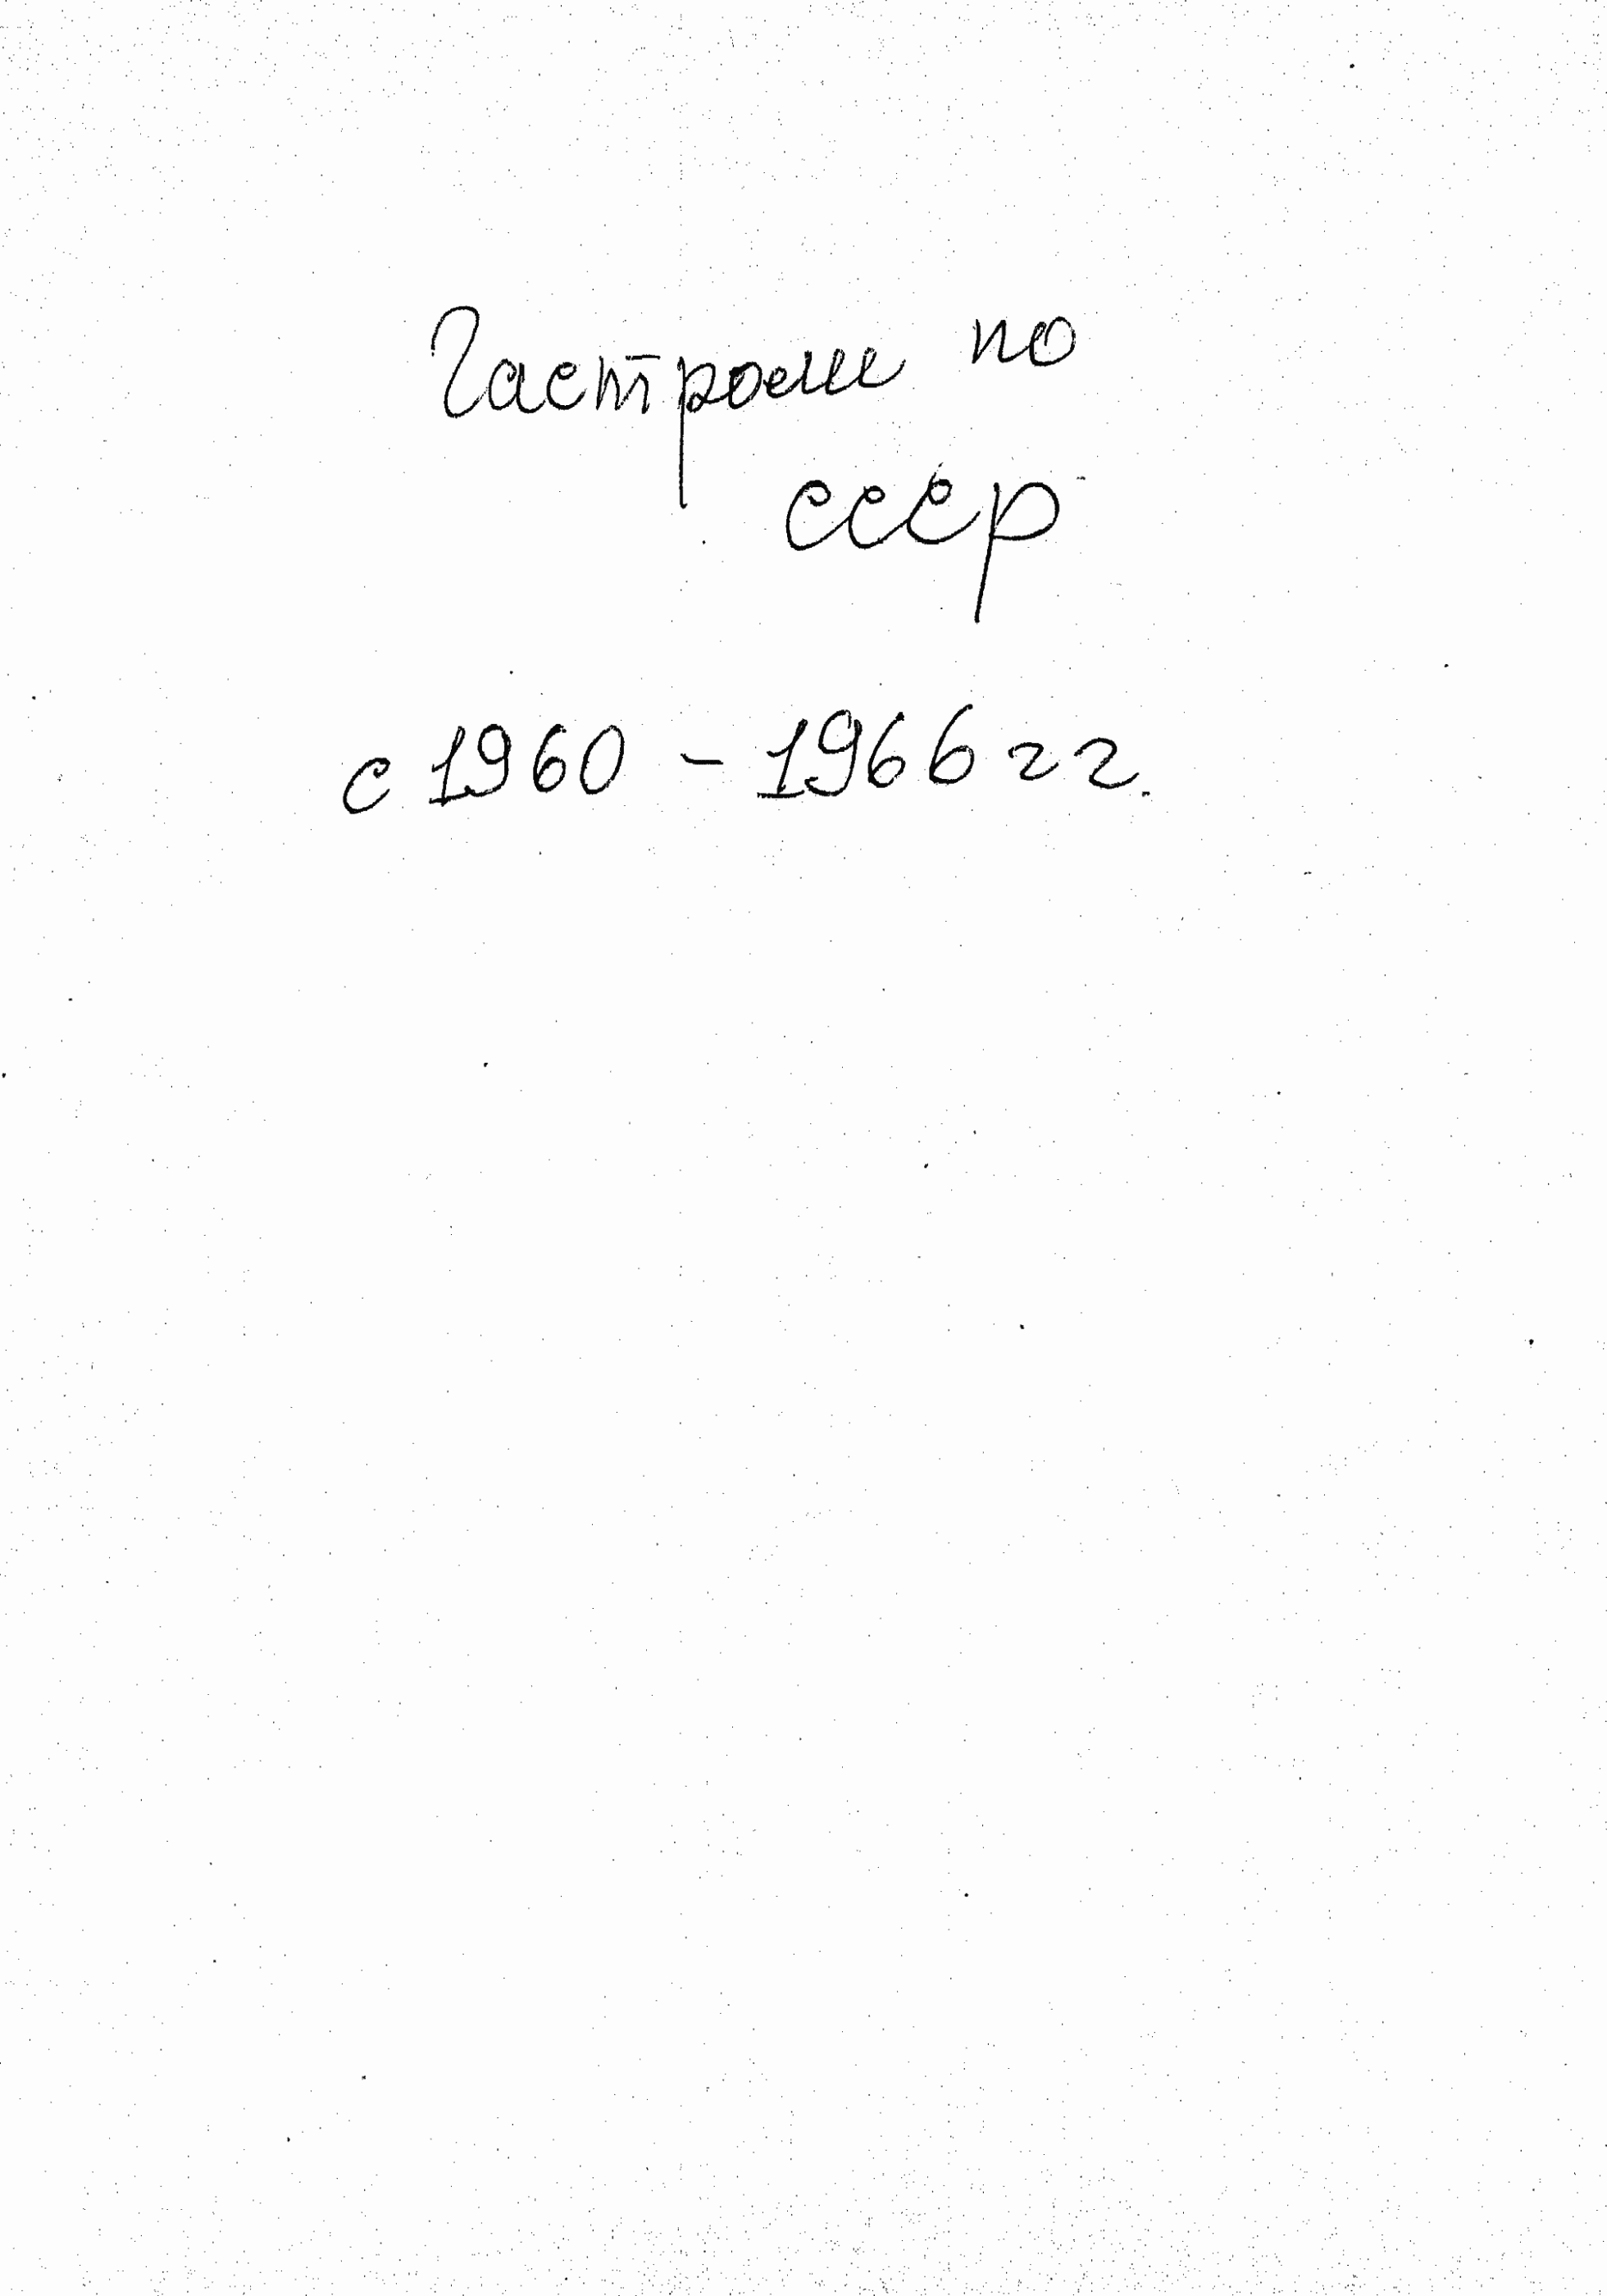 Гастроли по
СССР
с 1960 - 1966 гг.